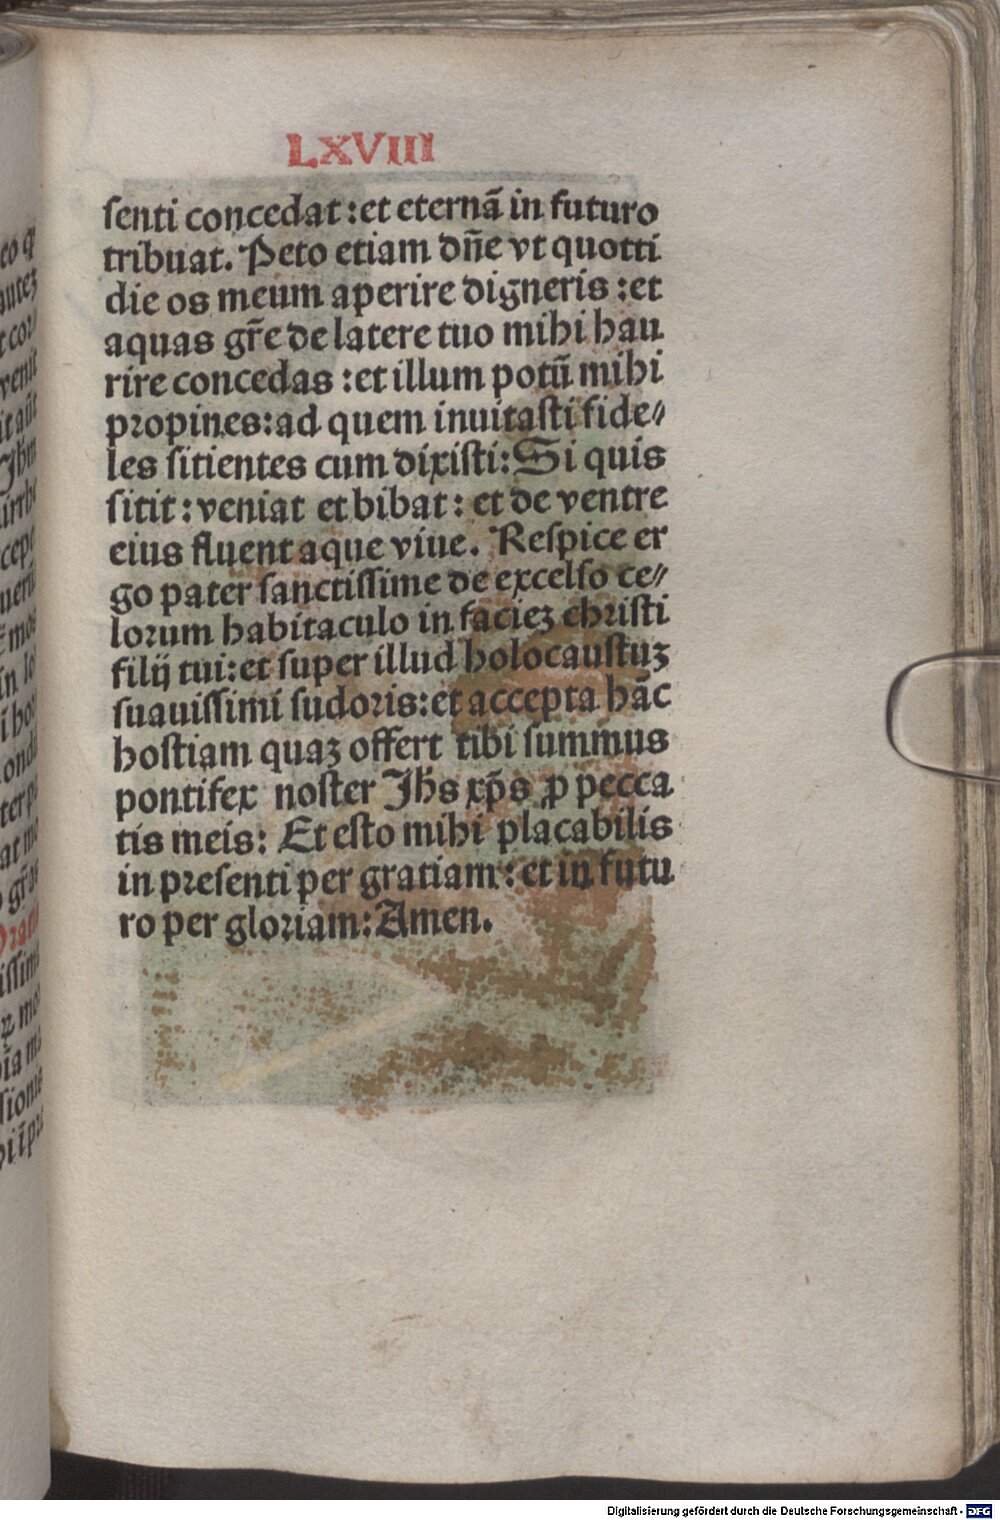 LXVIII
senti concedat : et eternā in futuro
tribuat. Peto etiam dn̄e vt quotti
die os meum aperire digneris : et
aquas gr̄e de latere tuo mihi hau
rire concedas : et illum potū mihi
propines: ad quem inuitasti fide⸗
les sitientes cum dixisti: Si quis
sitit : veniat et bibat : et de ventre
eius fluent aque viue. Respice er
go pater sanctissime de excelso ce⸗
lorum habitaculo in faciez christi
filij tui: et super illud holocaustuz
suauissimi sudoris: et accepta hāc
hostiam quaz offert tibi summus
pontifex noster Jhs xp̄s ꝓ pecca
tis meis: Et esto mihi placabilis
in presenti per gratiam : et in futu
ro per gloriam: Amen.
Digitalisierung gefördert durch die Deutsche Forschungsgemeinschaft - DFG